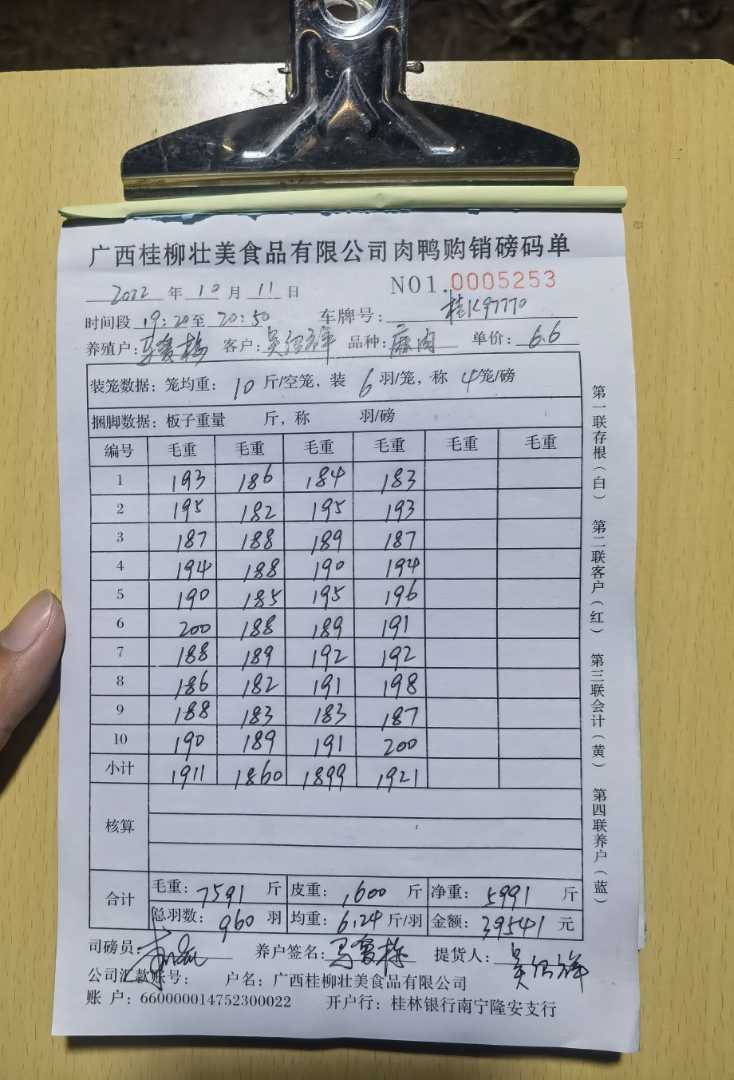 广西桂柳壮美食品有限公司肉鸭购销磅码单
2022 年 10 月 11 日 NO1.0005253
时间段 19:20至 20:50 车牌号: 桂K97770
养殖户: 客户: 吴绍祥 品种: 麻肉 单价: 6.6
装笼数据: 笼均重: 10 斤/空笼, 装 6 羽/笼, 称 4笼/磅
捆脚数据: 板子重量 斤, 称 羽/磅
编号 毛重 毛重 毛重 毛重 毛重 毛重
1 193 186 184 183
2 195 182 195 193
3 187 188 189 187
4 194 188 190 194
5 190 185 195 196
6 200 188 189 191
7 188 189 192 192
8 186 182 191 198
9 188 183 183 187
10 190 189 191 200
小计 1911 1860 1899 1921
核算
合计 毛重: 7591 斤 皮重: 1600 斤 净重: 5991 斤
总羽数: 960 羽 均重: 6.24 斤/羽 金额: 39541 元
司磅员: 养户签名: 提货人: 吴绍祥
公司汇款账号: 户名: 广西桂柳壮美食品有限公司
账 户: 660000014752300022 开户行: 桂林银行南宁隆安支行
第一联存根(白) 第二联客户(红) 第三联会计(黄) 第四联养户(蓝)